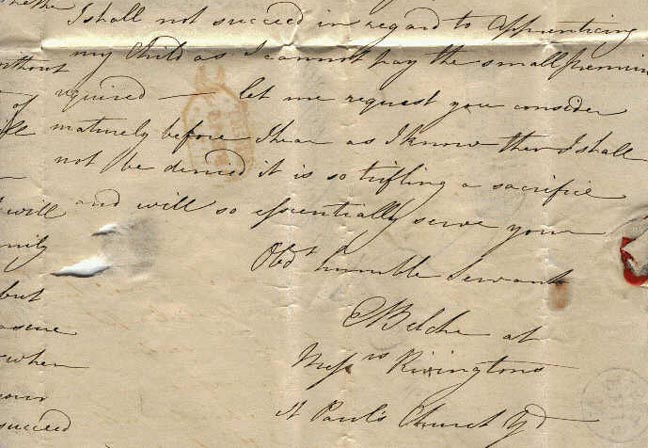 I shall not succeed in regard to Apprenticing
my Child as I cannot pay the small premium
required — let me request you consider
maturely before I hear as I know then I shall
not be denied it is so trifling a sacrifice
and will so essentially serve your
Obdt humble Servant
Belcher at
Messrs Rivingtons
St Paul's Church Yd
without
of
will
but
when
your
succeed